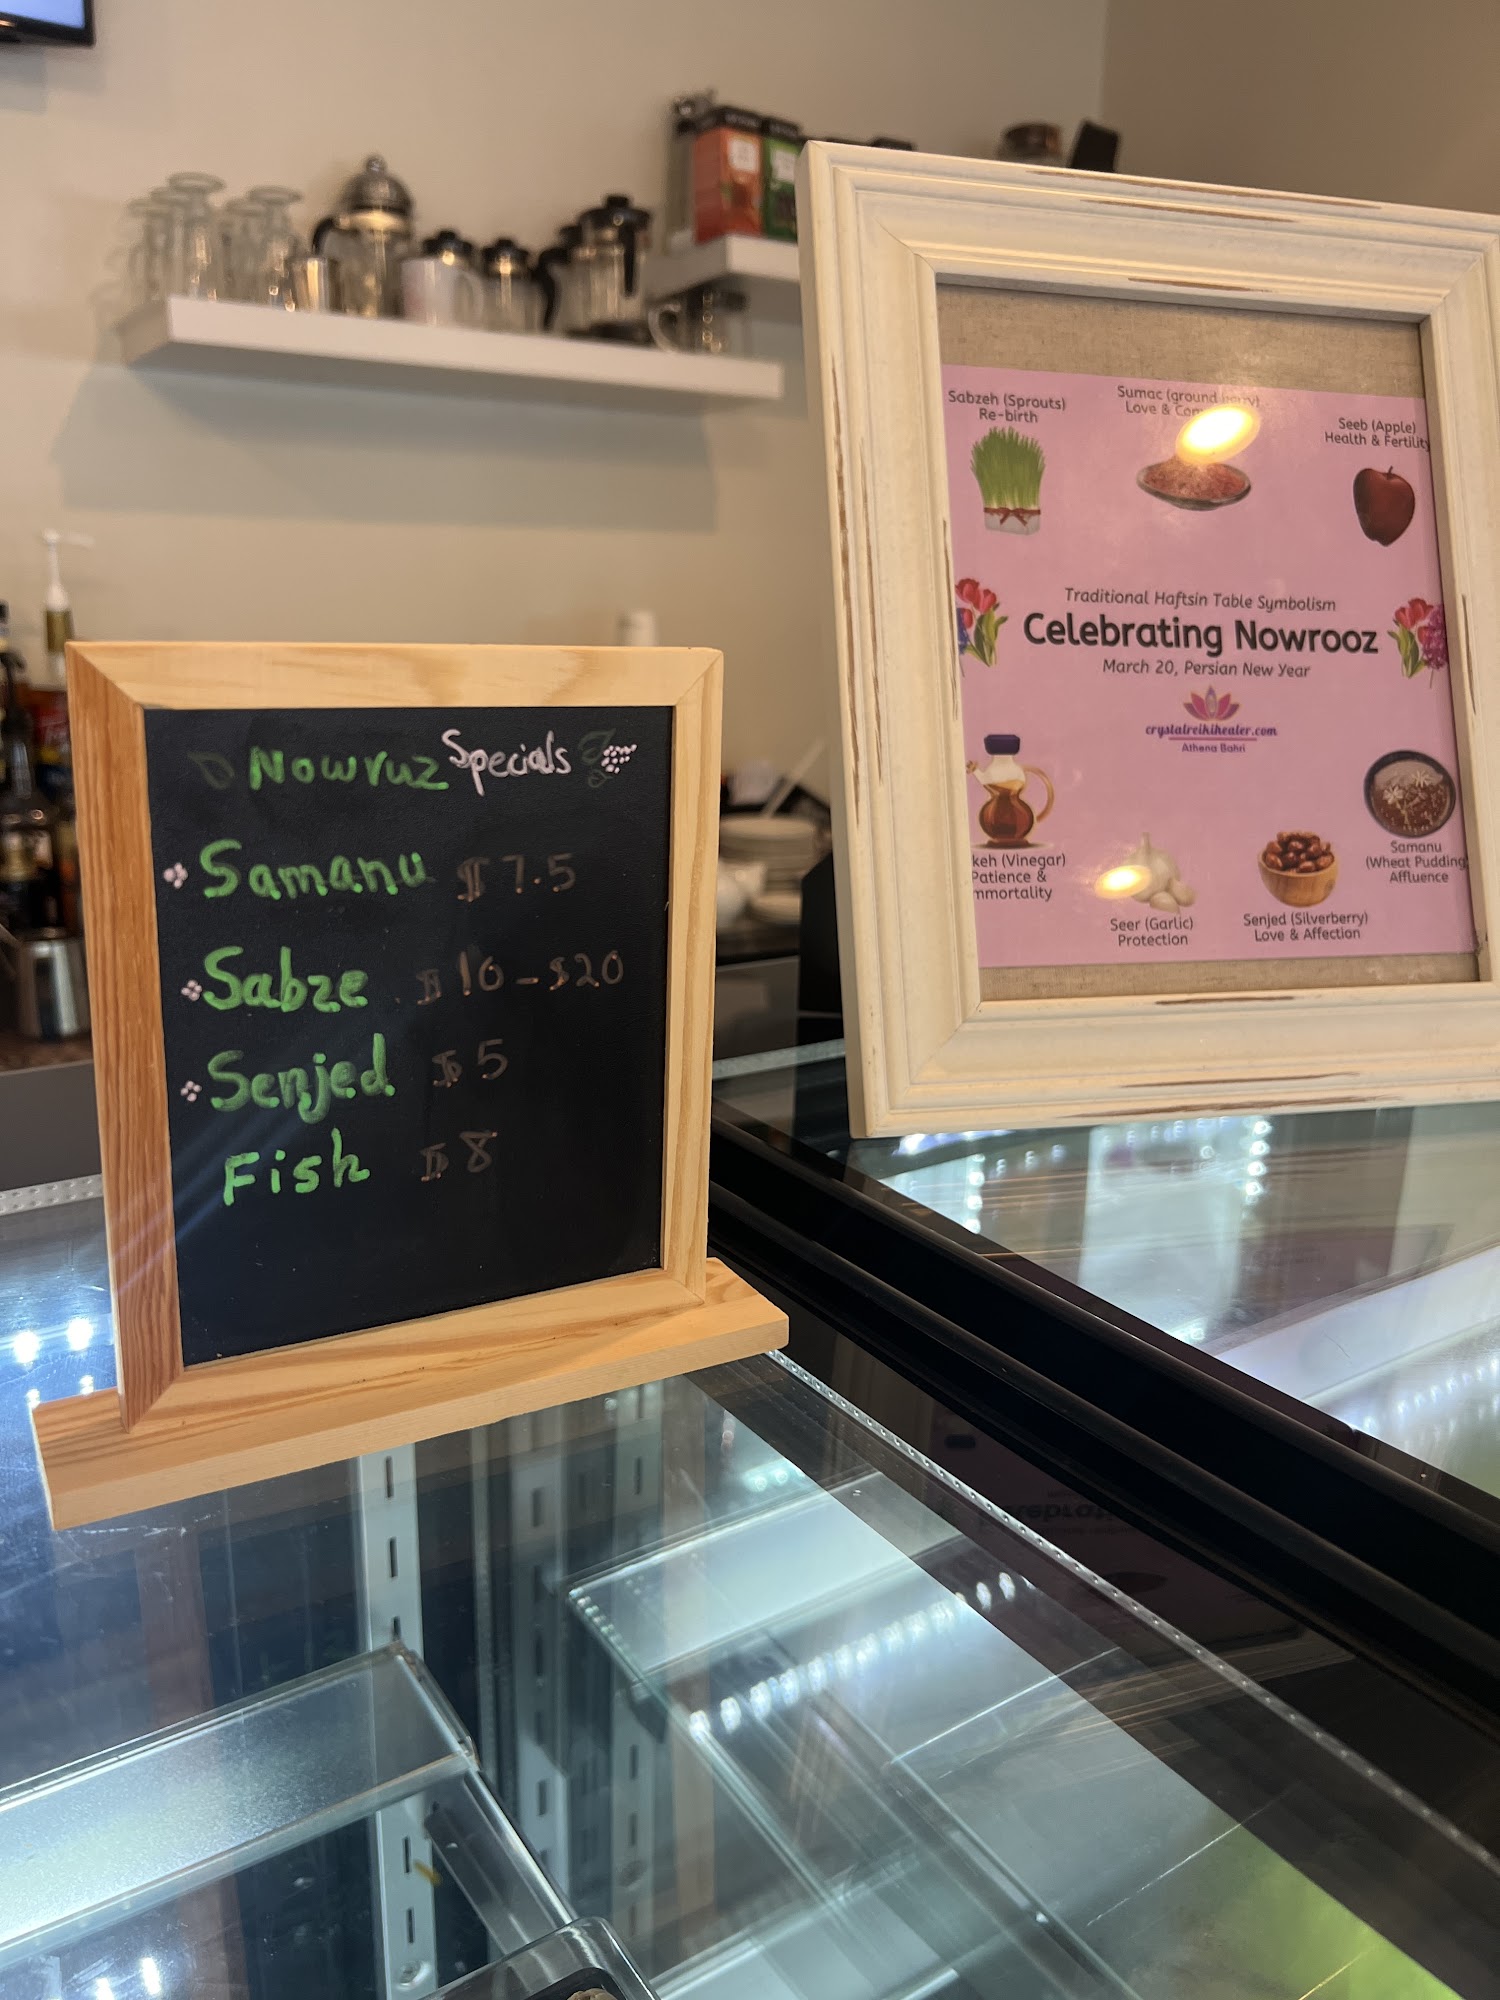 Nowruz Specials
Samanu $7.5
Sabze $10-$20
Senjed $5
Fish $8
Sabzeh (Sprouts)
Re-birth
Sumac (ground
Love &
Seeb (Apple)
Health & Fertility
Traditional Haftsin Table Symbolism
Celebrating Nowrooz
March 20, Persian New Year
crystalreikihealer.com
Athena Bahri
keh (Vinegar)
Patience &
mmortality
Seer (Garlic)
Protection
Senjed (Silverberry)
Love & Affection
Samanu
(Wheat Pudding
Affluence